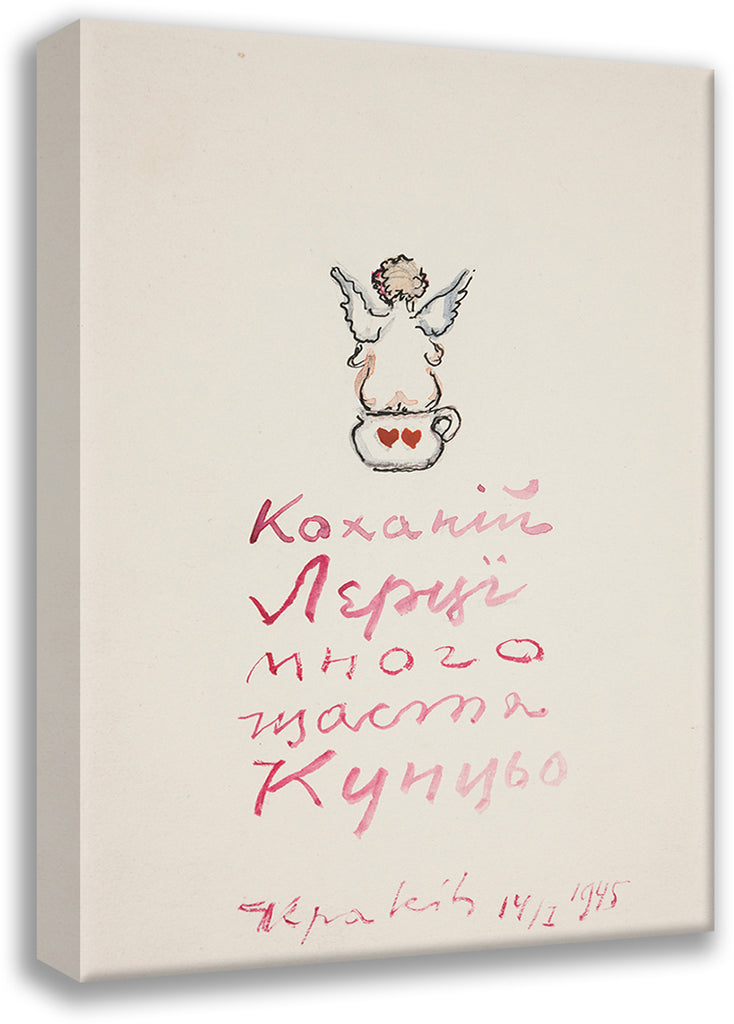 Коханій
Лєрці
много
щастя
Куньцьо
Краків 14/I 1945